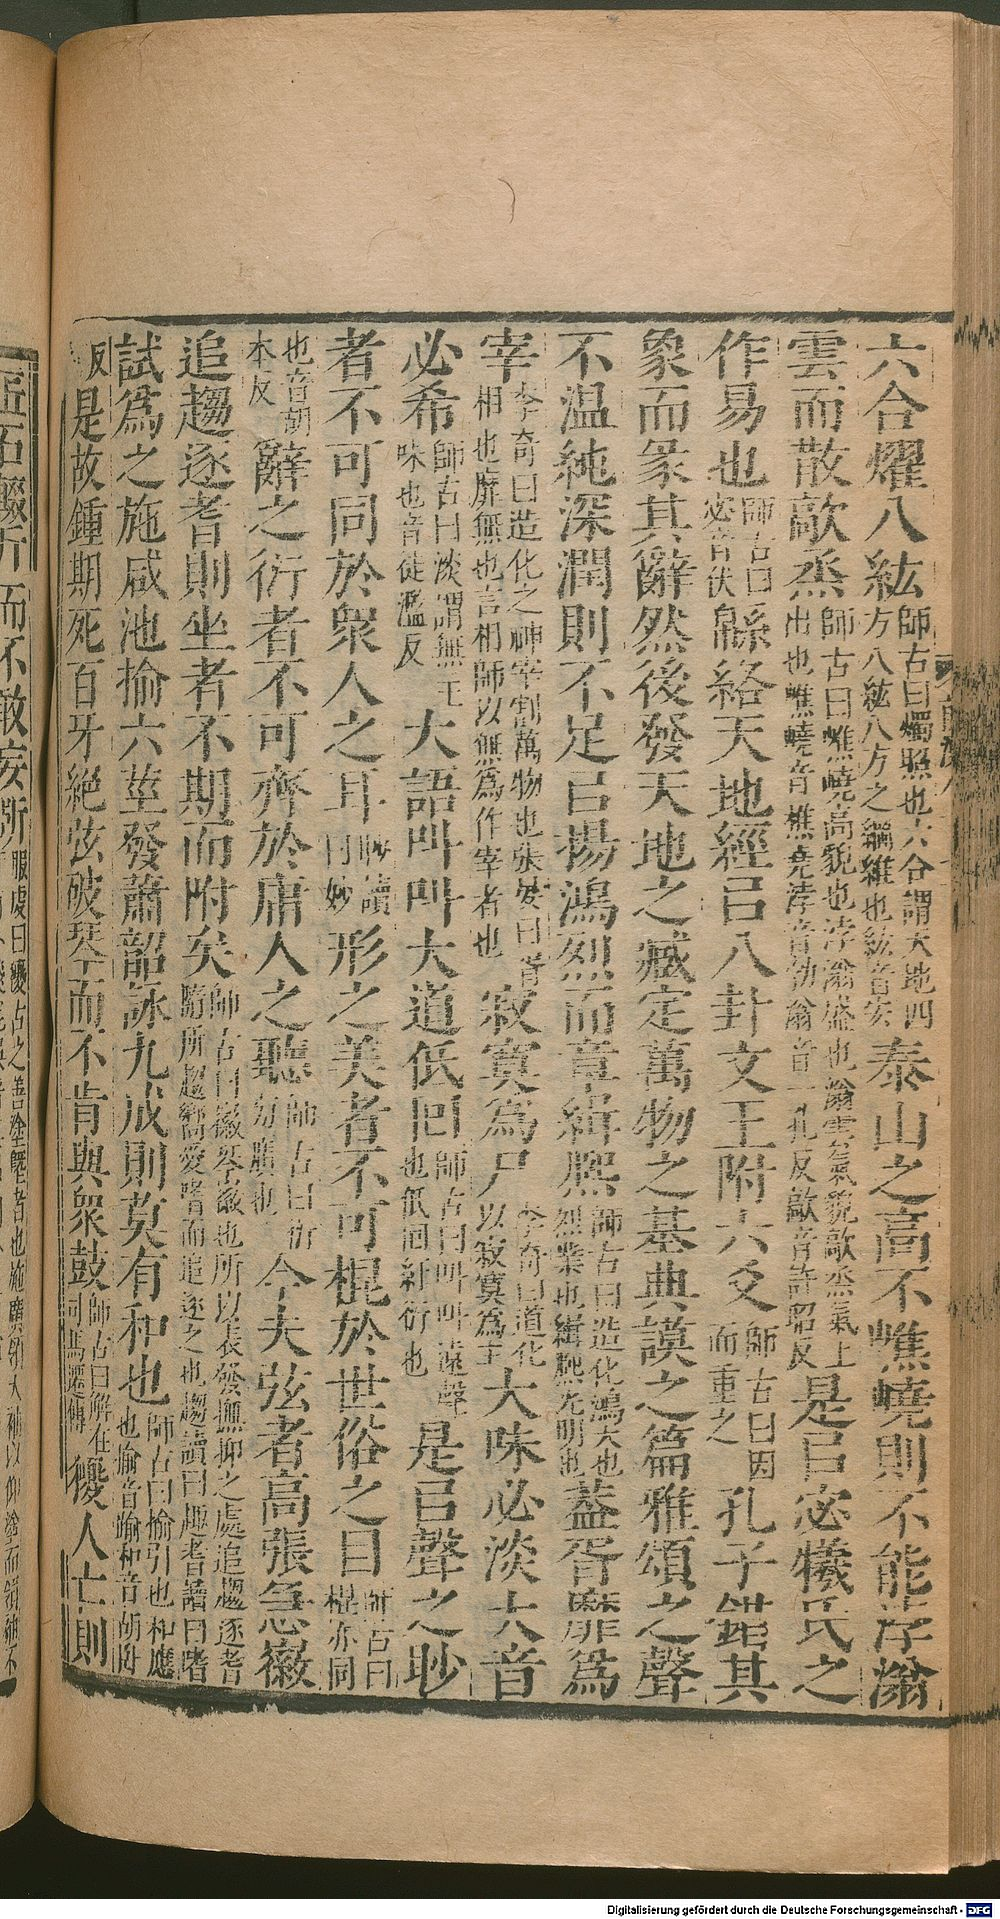 六合燿八紘師古曰燭照也六合謂天地四方八紘八方之綱維也紘音宏泰山之高不嶕嶢則不能浡滃
雲而散歊烝師古曰嶕嶢高貌也浡滃盛也滃雲氣貌歊烝氣上出也嶕嶢音樵堯浡音勃滃音一孔反歊音許昭反是㠯宓犧氏之
作易也師古曰宓音伏緜絡天地經㠯八卦文王附六爻師古曰因而重之孔子錯其
象而彖其辭然後發天地之臧定萬物之基典謨之篇雅頌之聲
不温純深潤則不足㠯揚鴻烈而章緝熙師古曰造化鴻大也烈業也緝熙光明也蓋胥靡為
宰李奇曰造化之神宰割萬物也張晏曰胥相也靡無也言相師以無為作宰者也寂寞為尸李奇曰道化以寂寞為主大味必淡大音
必希師古曰淡謂無主味也音徒濫反大語叫叫大道低回師古曰叫叫遠聲也低回紆衍也是㠯聲之眇
者不可同於衆人之耳眇讀曰妙形之美者不可棍於世俗之目師古曰棍亦同
也音胡本反辭之衍者不可齊於庸人之聽師古曰衍旁廣也今夫弦者高張急徽
追趨逐耆則坐者不期而附矣師古曰徽琴徽也所以表發撫抑之處追趨逐耆隨所趨嚮愛嗜而追逐之也趨讀曰趣耆讀曰嗜
試為之施咸池揄六莖發蕭韶詠九成則莫有和也師古曰揄引也和應也揄音踰和音胡臥
反是故鍾期死百牙絶弦破琴而不肯與衆鼓師古曰解在司馬遷傳獿人亡則
匠石輟斤而不敢妄斲
Digitalisierung gefördert durch die Deutsche Forschungsgemeinschaft - DFG